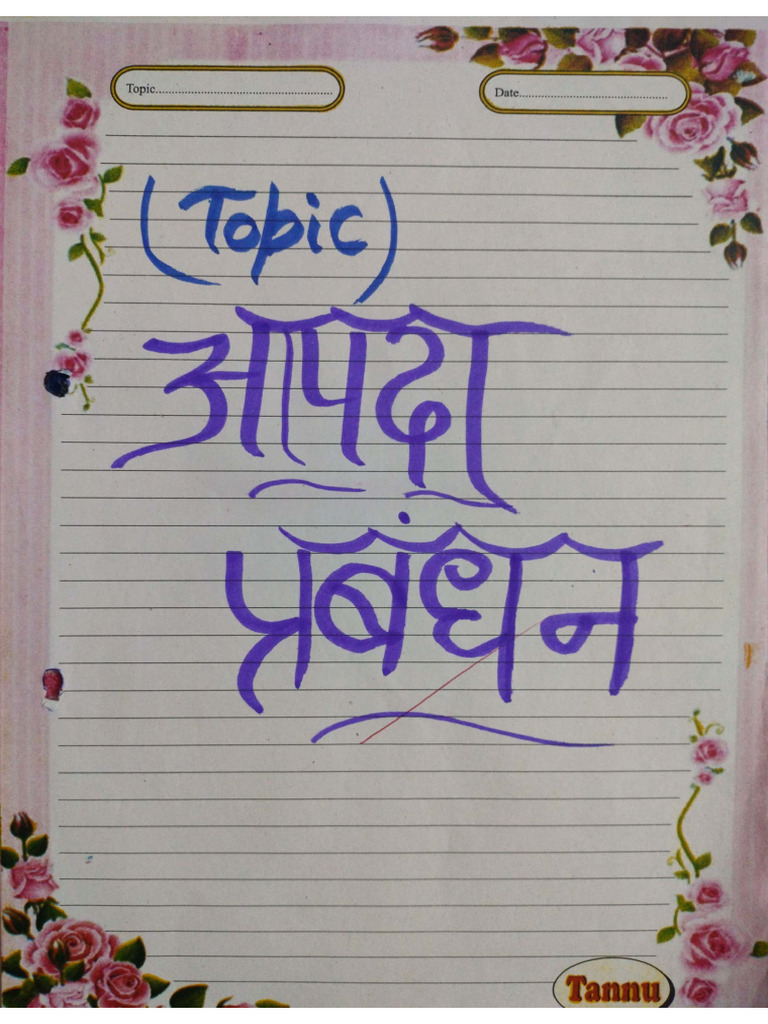 Topic........................................................ Date...............................................
(Topic)
आपदा
प्रबंधन
Tannu